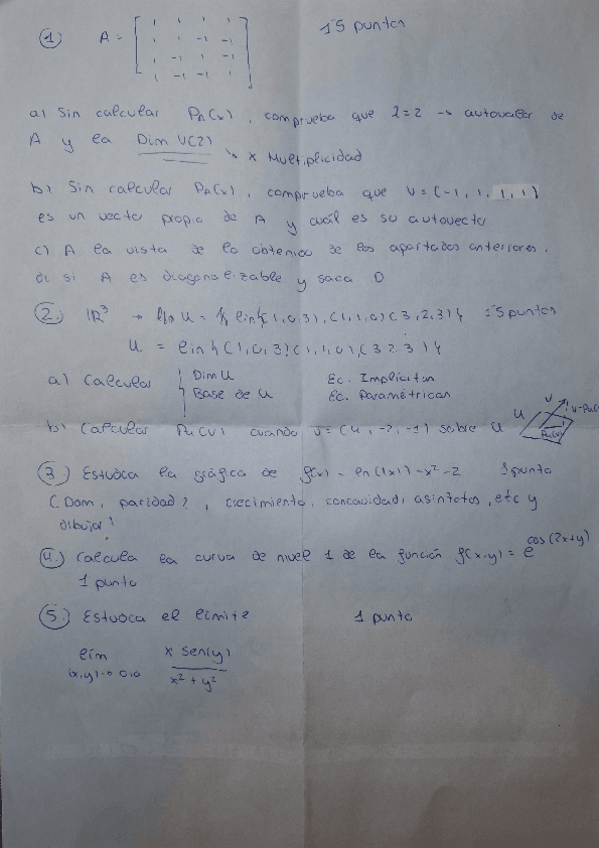 ① A = [ 1 1 1 1 15 puntos
1 1 -1 -1
1 -1 1 -1
1 -1 -1 1 ]
a) Sin calcular PA(x), comprueba que λ=2 → autovalor de
A y la Dim V(2) ↘ x Multiplicidad
b) Sin calcular PA(x), comprueba que v = (-1, 1, 1, 1)
es un vector propio de A y cuál es su autovecto
c) A la vista de lo obtenido de los apartados anteriores.
di si A es diagonalizable y saca D
② IR³ → U = lin{(1,0,3),(1,1,0)(3,2,3)} 15 puntos
U = lin{(1,0,3)(1,1,0),(3 2 3)}
a) Calcular Dim U Ec. Implicitas
Base de U Ec. Paramétricas
b) Calcular Pu(v) cuando v = (4, -2, -1) sobre U
U v v-Pu(v)
Pu(v)
③ Estudia la gráfica de f(x) = ln(|x|) - x² - 2 1 punto
(Dom, paridad?, crecimiento, concavidad, asintotas, etc y
dibujar!
④.) Calcula la curva de nivel 1 de la función f(x,y) = e^cos(2x+y)
1 punto
⑤.) Estudia el límite 1 punto
lím x sen(y)
(x,y)→0,0 x² + y²